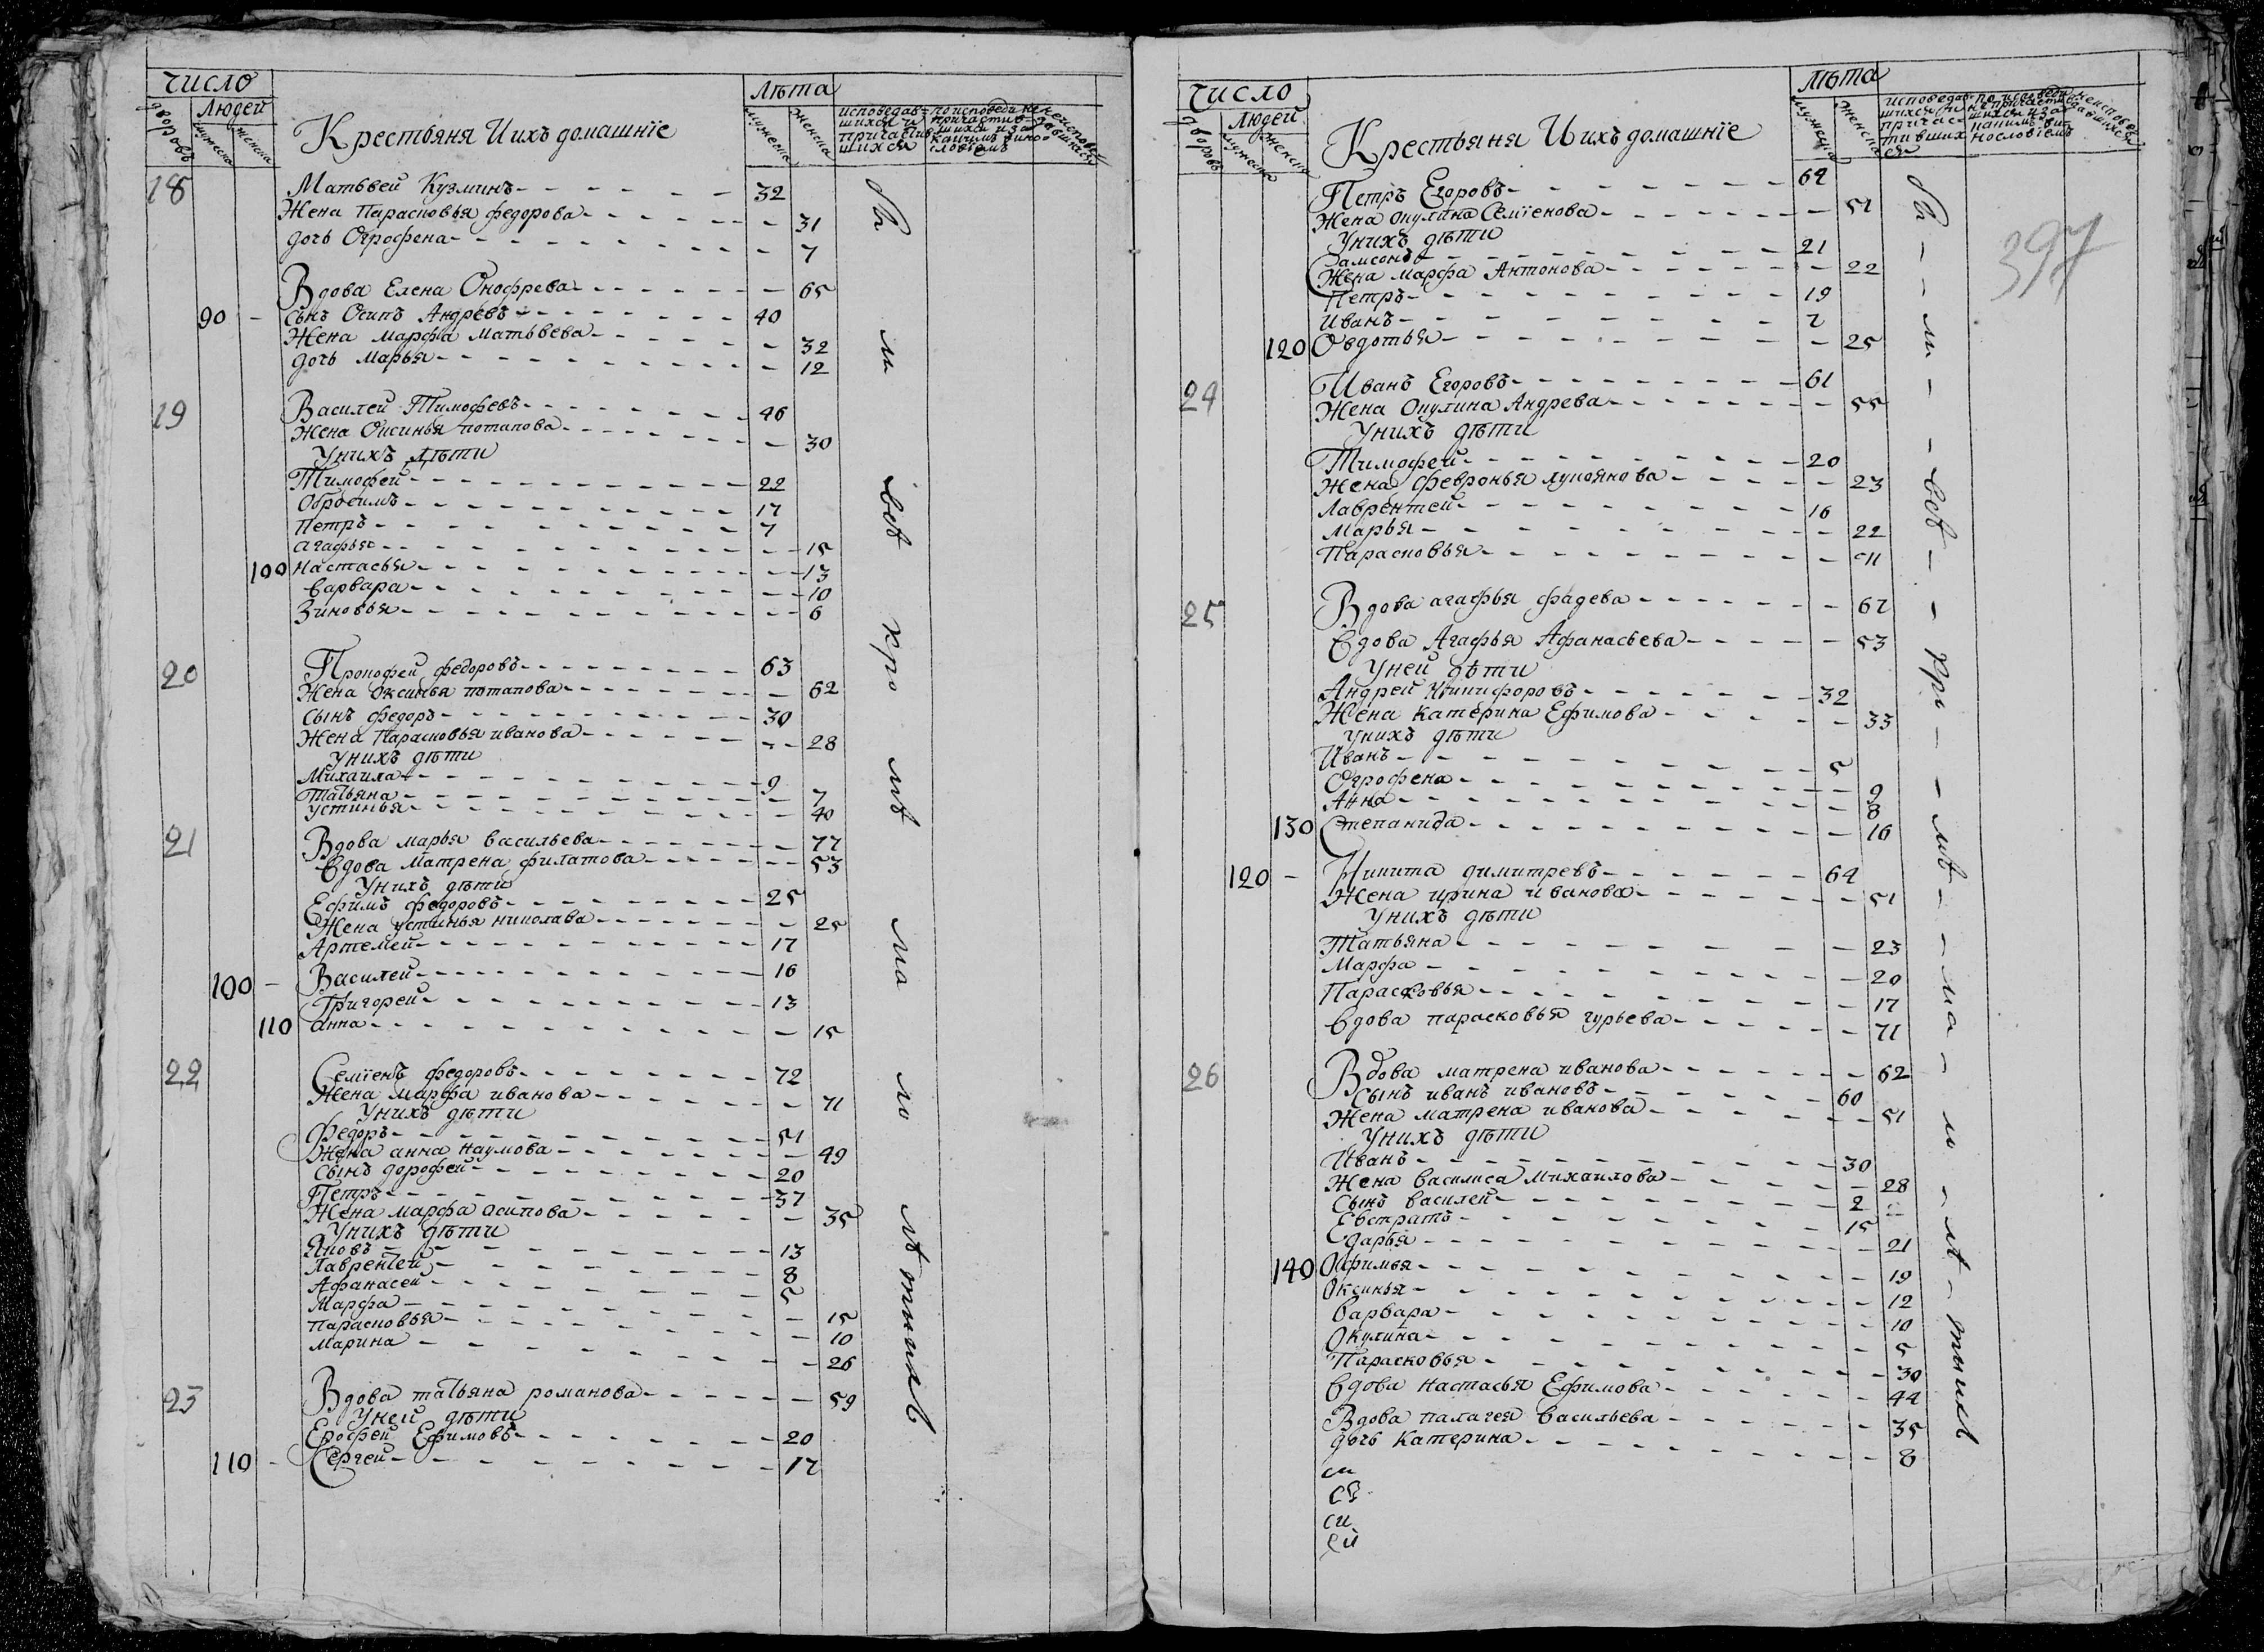 число
Лѣта
дворовъ
Людей
мужеска
женска
Крестьяня Иихъ домашнїе
мужеска
женска
исповедав
шихся и
причастив
шихся
18
Матьвей Кузминъ - 32
Жена Парасковья федорова - 31
дочь Огрофена - 7
Вдова Елена Онофрева - 65
90 - сынъ Осипъ Андревъ - 40
Жена марфа матьвева - 32
дочь марья - 12
19
Василей Тимофевъ - 46
Жена Оксинья потапова - 30
Унихъ дѣти
Тимофей - 22
Обросимъ - 17
Петръ - 7
агафья - 15
100 настасья - 13
варвара - 10
Зиновья - 6
20
Прокофей федоровъ - 63
Жена Оксинья потапова - 62
сынъ федоръ - 30
Жена Парасковья иванова - 28
Унихъ дѣти
Михаила - 9
татьяна - 7
устинья - 40
21
Вдова марья васильева - 77
Вдова матрена филатова - 53
Унихъ дѣти
Ефимъ федоровъ - 25
Жена устинья николава - 25
Артемей - 17
100 - Василей - 16
Григорей - 13
110 анна - 15
22
Семїенъ федоровъ - 72
Жена марфа иванова - 71
Унихъ дѣти
федоръ - 51
Жена анна наумова - 49
сынъ дорофей - 20
Петръ - 37
Жена марфа осипова - 35
Унихъ дѣти
Яковъ - 13
Лаврентей - 8
Афанасей - 5
Марфа - 15
парасковья - 10
марина - 26
23
Вдова татьяна романова - 59
Уней дѣти
Ерофей Ефимовъ - 20
110 - Сергей - 17
число
Лѣта
дворовъ
Людей
мужеска
женска
Крестьяня Иихъ домашнїе
мужеска
женска
397
Петръ Егоровъ - 64
Жена окулина Семїенова - 51
Унихъ дѣти
Самсонъ - 21
Жена марфа Антонова - 22
Петръ - 19
Иванъ - 7
120 Овдотья - 25
24
Иванъ Егоровъ - 61
Жена Окулина Андрева - 55
Унихъ дѣти
Тимофей - 20
Жена февронья лукоянова - 23
Лаврентей - 16
Марья - 22
Парасковья - 11
25
Вдова агафья фадева - 67
Вдова Агафья Афанасьева - 53
Уней дѣти
Андрей Никифоровъ - 32
Жена катерина Ефимова - 33
Унихъ дѣти
Иванъ - 5
Огрофена - 9
Анна - 8
130 Степанида - 16
120 - Никита димитревъ - 64
Жена ирина иванова - 51
Унихъ дѣти
Татьяна - 23
Марфа - 20
Парасковья - 17
Вдова парасковья гурьева - 71
26
Вдова матрена иванова - 62
Сынъ иванъ ивановъ - 60
Жена матрена иванова - 51
Унихъ дѣти
Иванъ - 30
Жена василиса михаилова - 28
Сынъ василей - 2
Евстратъ - 15
дарья - 21
140 Офимья - 19
Оксинья - 12
варвара - 10
Окулина - 5
Парасковья - 30
Вдова настасья Ефимова - 44
Вдова палагея васильева - 35
дочь катерина - 8